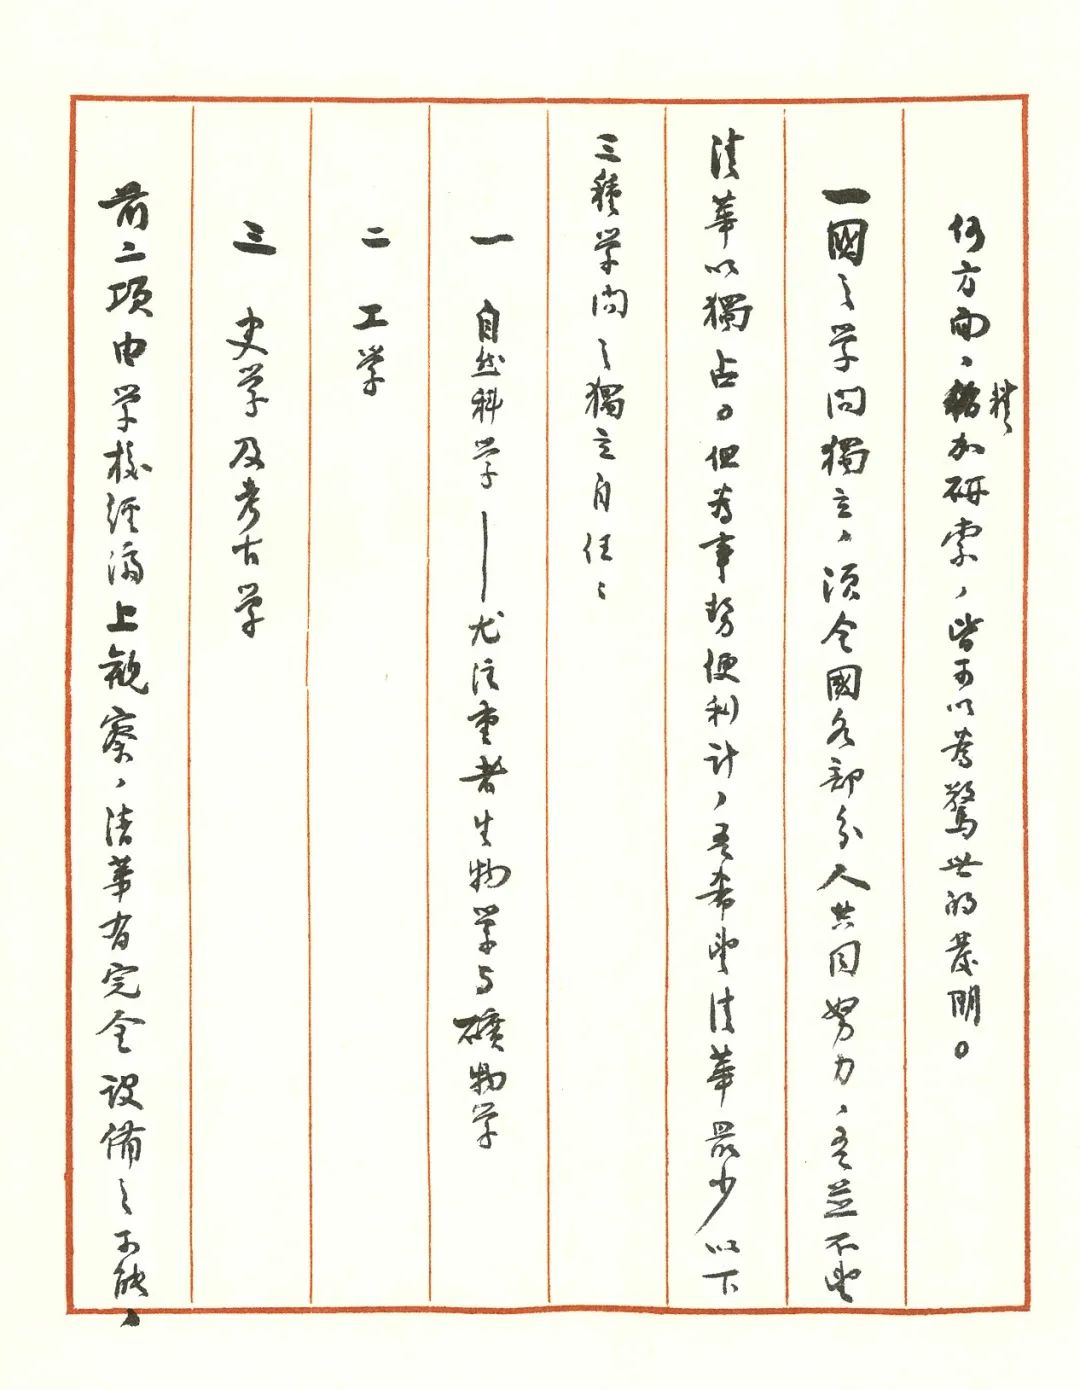 何方面、精加研索，皆可以為驚世的發明。
一國之学问獨立，須全國各部分人共同努力，吾並不望
清華以獨占。但為事勢便利計，吾希望清華最少以下
三種学问之獨立自任：
一 自然科学——尤注重者生物学与礦物学
二 工学
三 史学及考古学
前二項由学校經濟上觀察，清華有完全設備之可能，